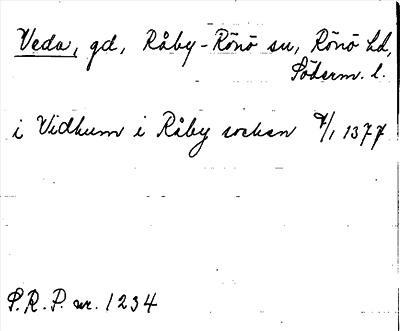 Veda, gd, Råby-Rönö sn, Rönö hd,
Söderm. l.
i Vidhum i Råby socken 7/1 1377
S.R.P. nr. 1234